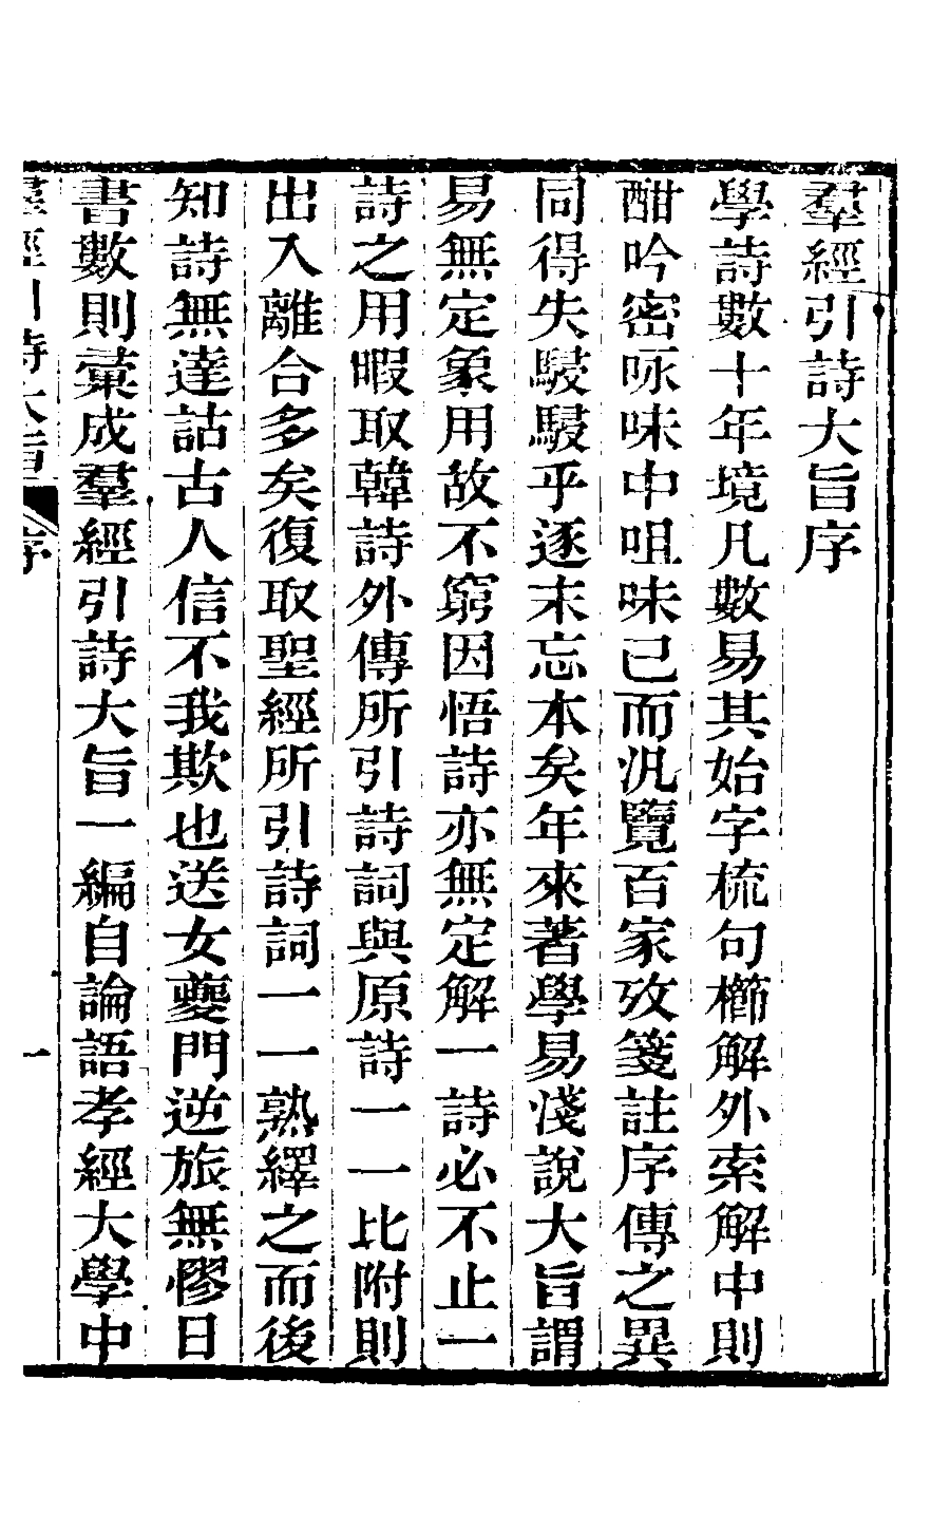 羣經引詩大旨序
學詩數十年境凡數易其始字梳句櫛解外索解中則
酣吟密咏味中咀味已而汎覽百家攷箋註序傳之異
同得失駸駸乎逐末忘本矣年來著學易淺說大旨謂
易無定象用故不窮因悟詩亦無定解一詩必不止一
詩之用暇取韓詩外傳所引詩詞與原詩一一比附則
出入離合多矣復取聖經所引詩詞一一熟繹之而後
知詩無達詁古人信不我欺也送女夔門逆旅無憀日
書數則彙成羣經引詩大旨一編自論語孝經大學中
羣經引詩大旨 序 一